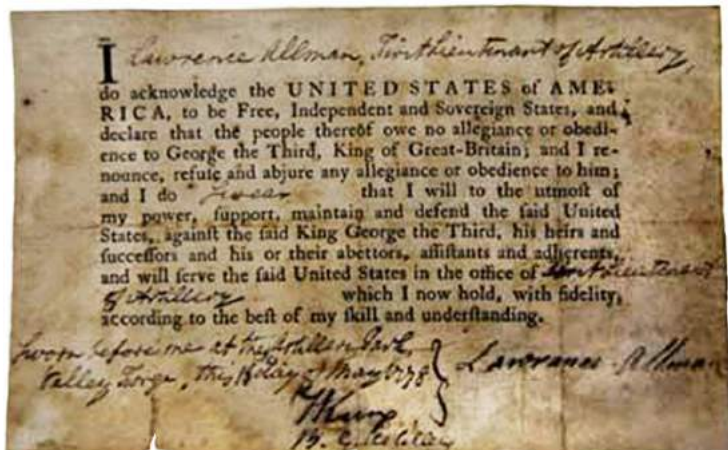 I Lawrence Allman, First Lieutenant of Artillery,
do acknowledge the UNITED STATES of AME-
RICA, to be Free, Independent and Sovereign States, and
declare that the people thereof owe no allegiance or obedi-
ence to George the Third, King of Great-Britain; and I re-
nounce, refuſe and abjure any allegiance or obedience to him;
and I do ſwear that I will to the utmoſt of
my power, ſupport, maintain and defend the ſaid United
States, againſt the ſaid King George the Third, his heirs and
ſucceſſors and his or their abettors, aſſiſtants and adherents,
and will ſerve the ſaid United States in the office of Firſt Lieutenant
of Artillery which I now hold, with fidelity,
according to the beſt of my ſkill and underſtanding.
Sworn before me at the Artillery Park,
Valley Forge, this day of May 1778
Lawrance Allman